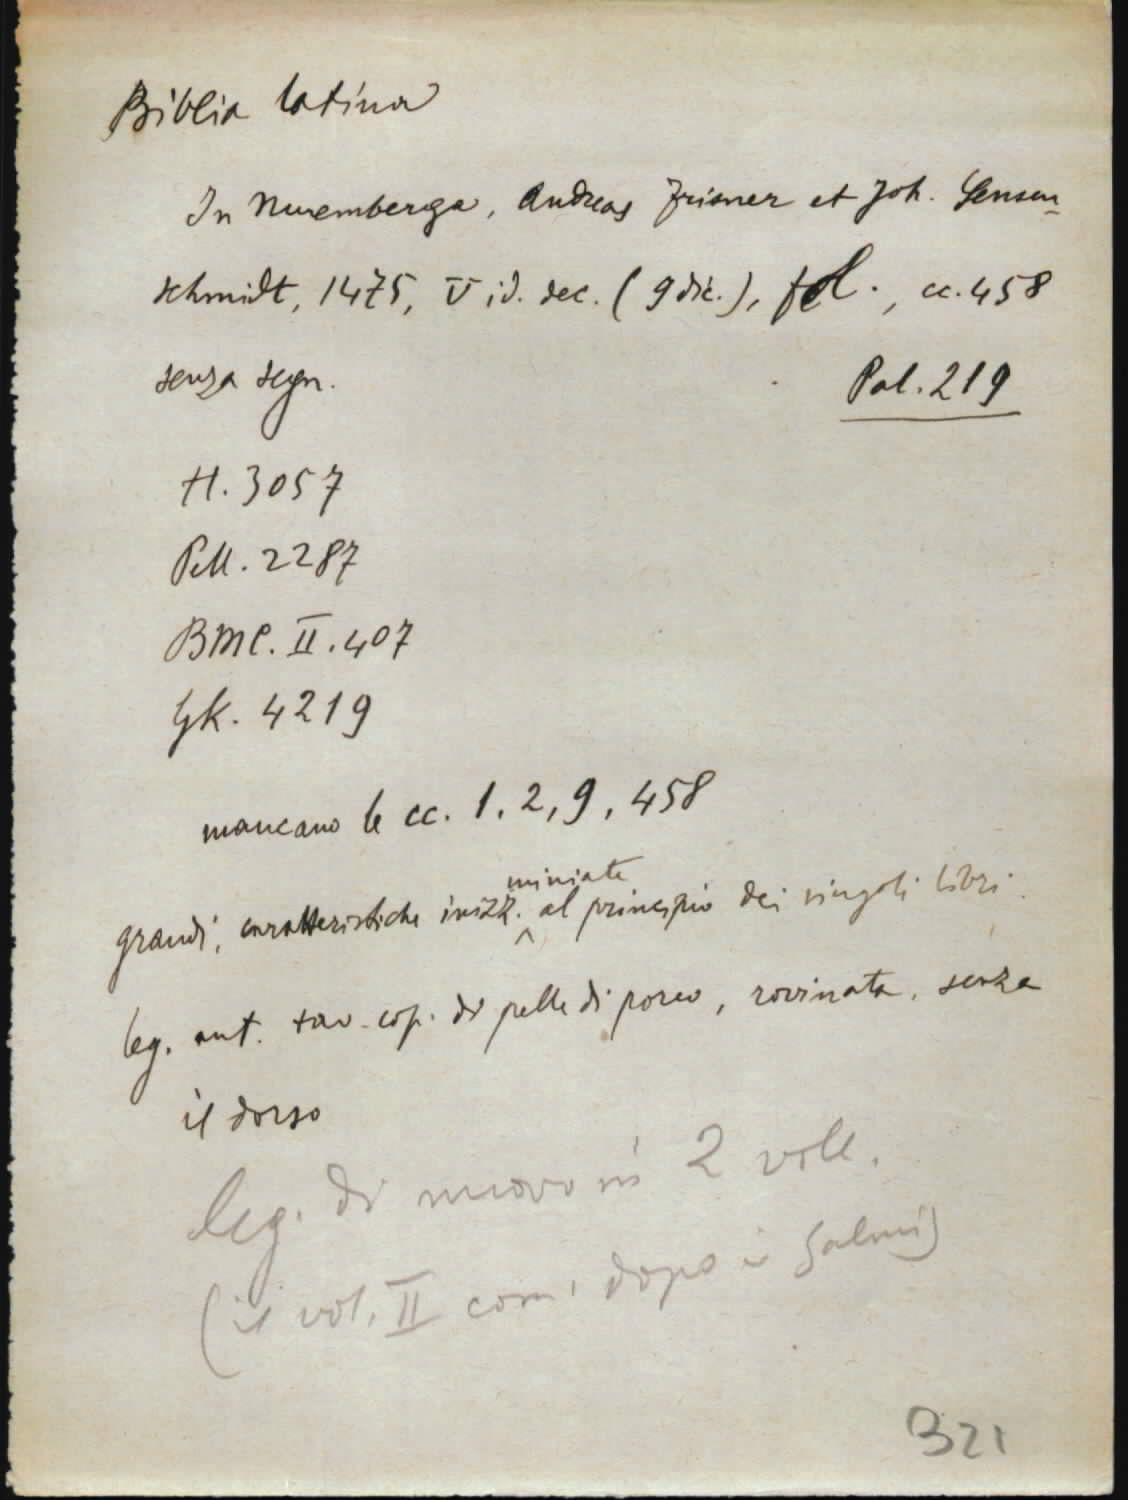 Biblia latina
In Nuremberga, Andreas Frisner et Joh. Sensen-
schmidt, 1475, V id. dec. (9 dic.), fol., cc. 458
senza segn.
Pal. 219
H. 3057
Pell. 2287
BMC. II. 407
GK. 4219
mancano le cc. 1, 2, 9, 458
miniate
grandi, caratteristiche inizz. ^ al principio dei singoli libri.
leg. ant. tav. cop. di pelle di porco, rovinata, senza
il dorso
leg. di nuovo in 2 voll.
(il vol. II com. dopo i Salmi)
B21